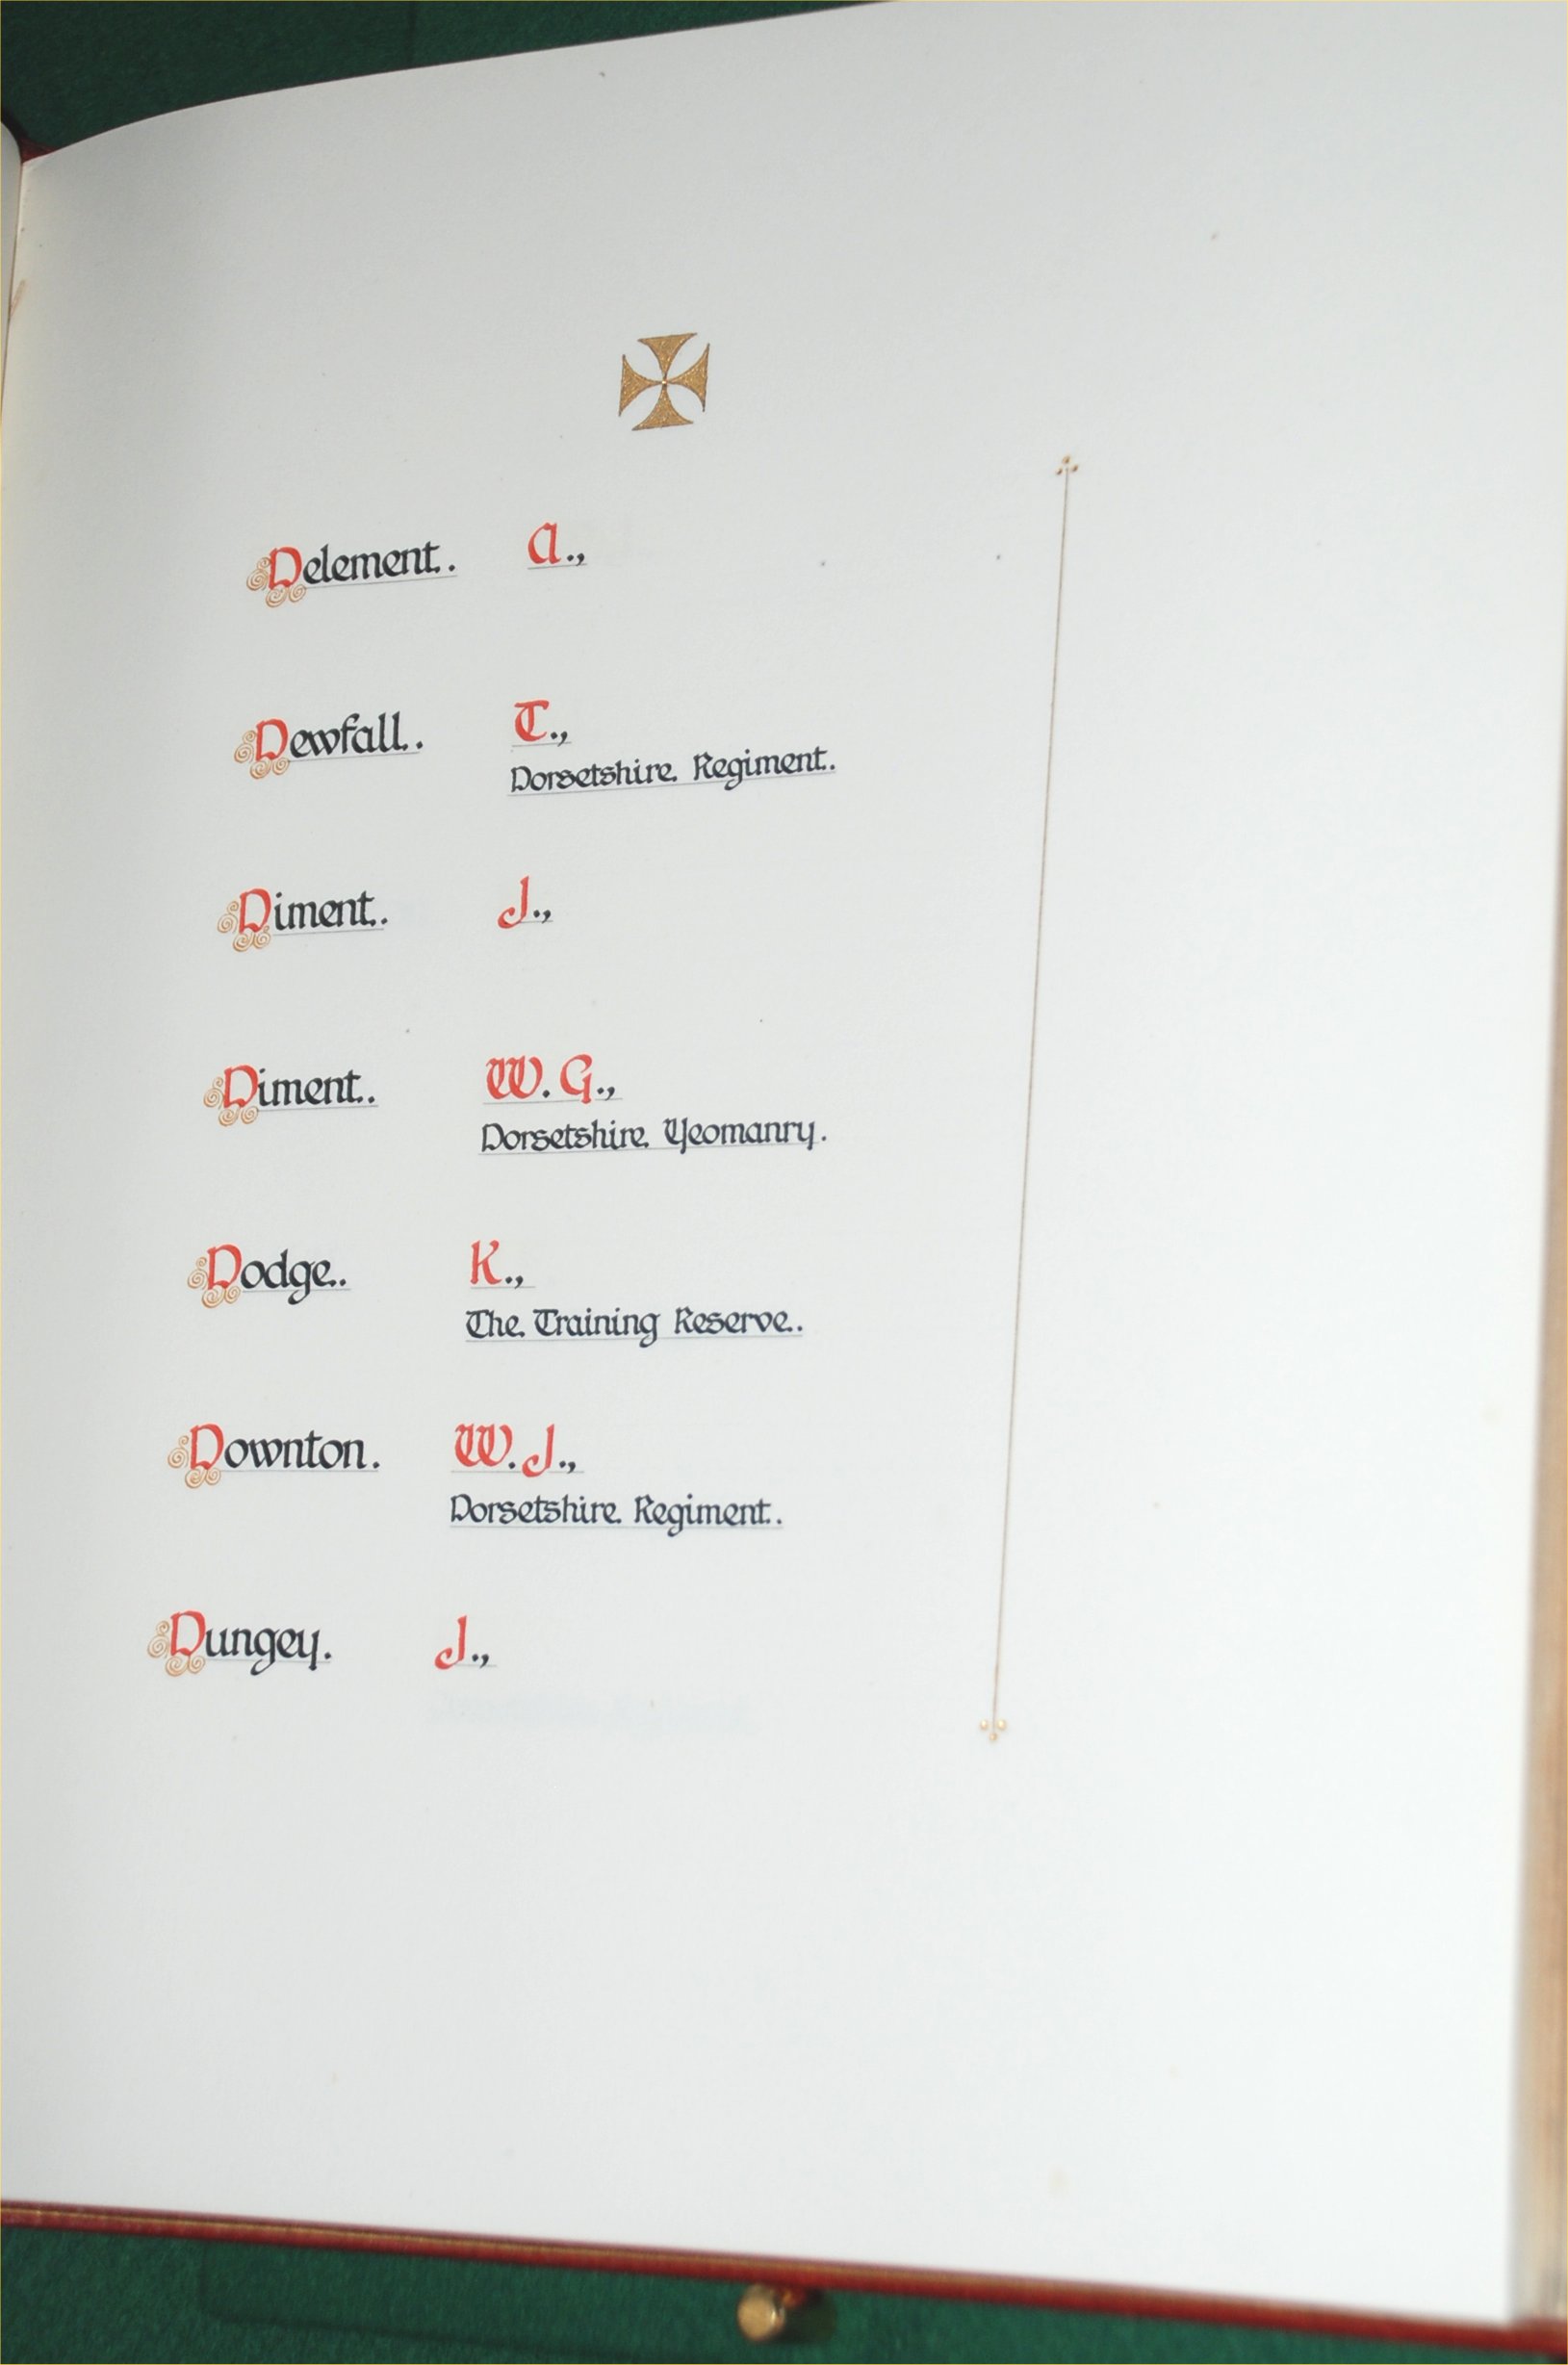 Delement. A.,
Dewfall. T.,
Dorsetshire Regiment.
Diment. J.,
Diment. W. G.,
Dorsetshire Yeomanry.
Dodge. K.,
The Training Reserve.
Downton. W. J.,
Dorsetshire Regiment.
Dungey. J.,